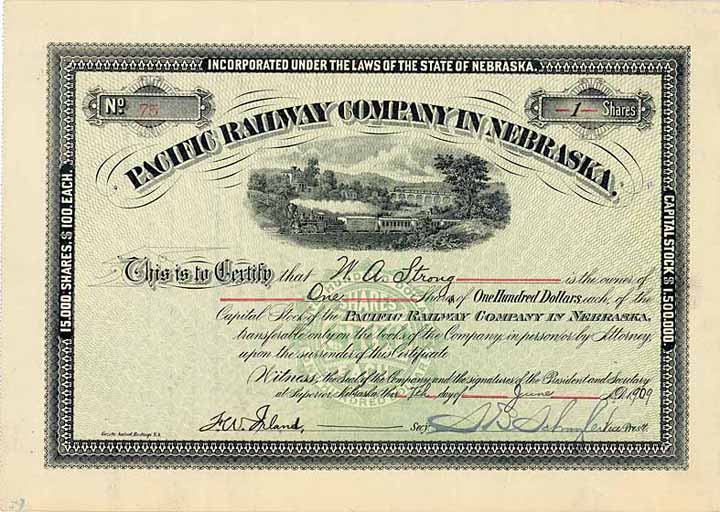 INCORPORATED UNDER THE LAWS OF THE STATE OF NEBRASKA.
No 75
—1— Shares
PACIFIC RAILWAY COMPANY IN NEBRASKA.
15,000, SHARES, $ 100, EACH.
CAPITAL STOCK $ 1,500,000.
This is to Certify that W. A. Strong is the owner of
One Shares of One Hundred Dollars each, of the
Capital Stock of the PACIFIC RAILWAY COMPANY IN NEBRASKA,
transferable only on the books of the Company, in person or by Attorney,
upon the surrender of this Certificate
SHARES
Witness, the seal of the Company and the signatures of the President and Secretary
at Superior, Nebraska this 7th day of June A.D. 1909
Sec'y.
Vice Prest.